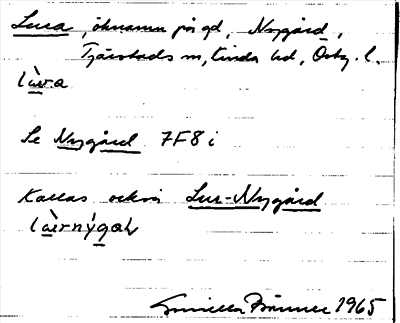 Lura, öknamn på gd, Nygård,
Tjärstads sn, Kinda hd, Östg. l.
Se Nygård 7F8i
Kallas också Lur-Nygård
Gunilla Brännee 1965